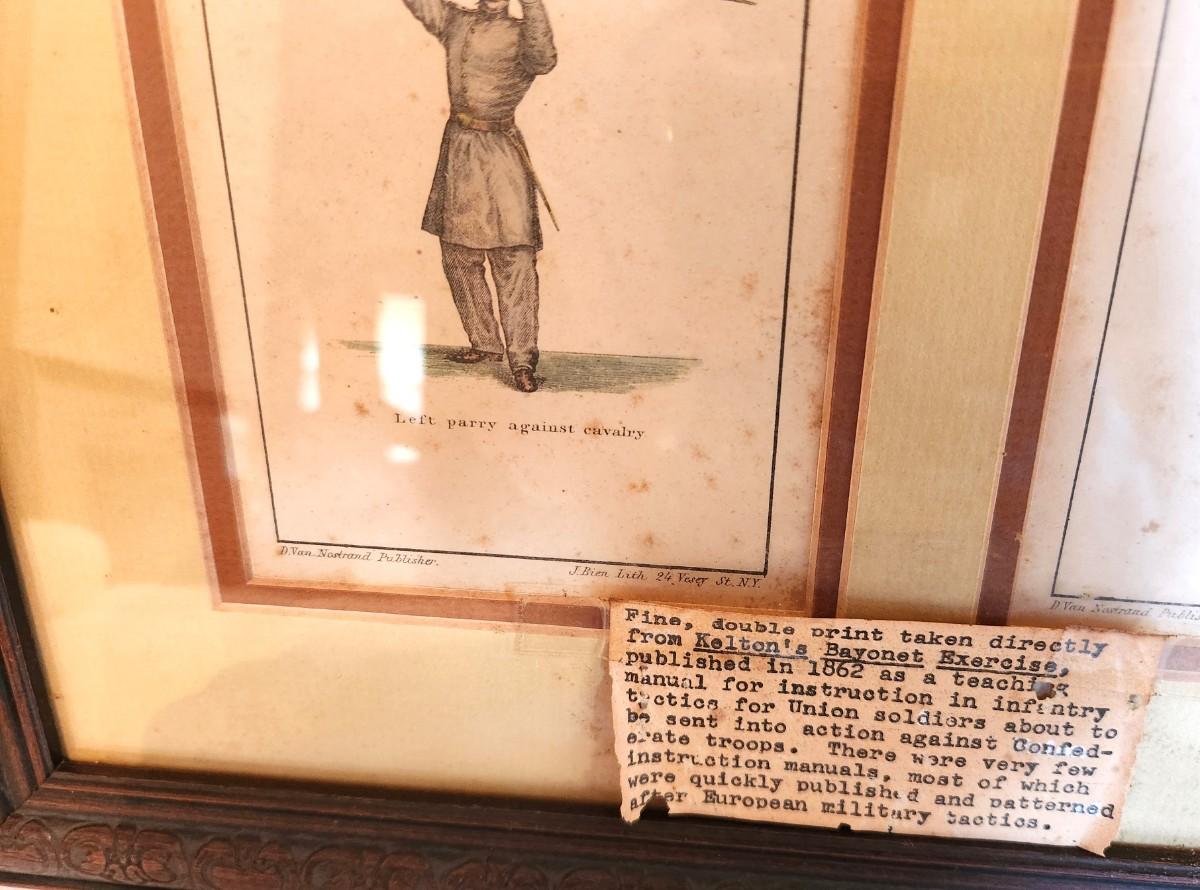 Left parry against cavalry
D. Van Nostrand Publisher.
J. Bien Lith. 24 Vesey St. N.Y.
D Van Nostrand
Fine, double print taken directly
from Kelton's Bayonet Exercise,
published in 1862 as a teaching
manual for instruction in infantry
tactics for Union soldiers about to
be sent into action against Confed-
erate troops. There were very few
instruction manuals, most of which
were quickly published and patterned
after European military tactics.